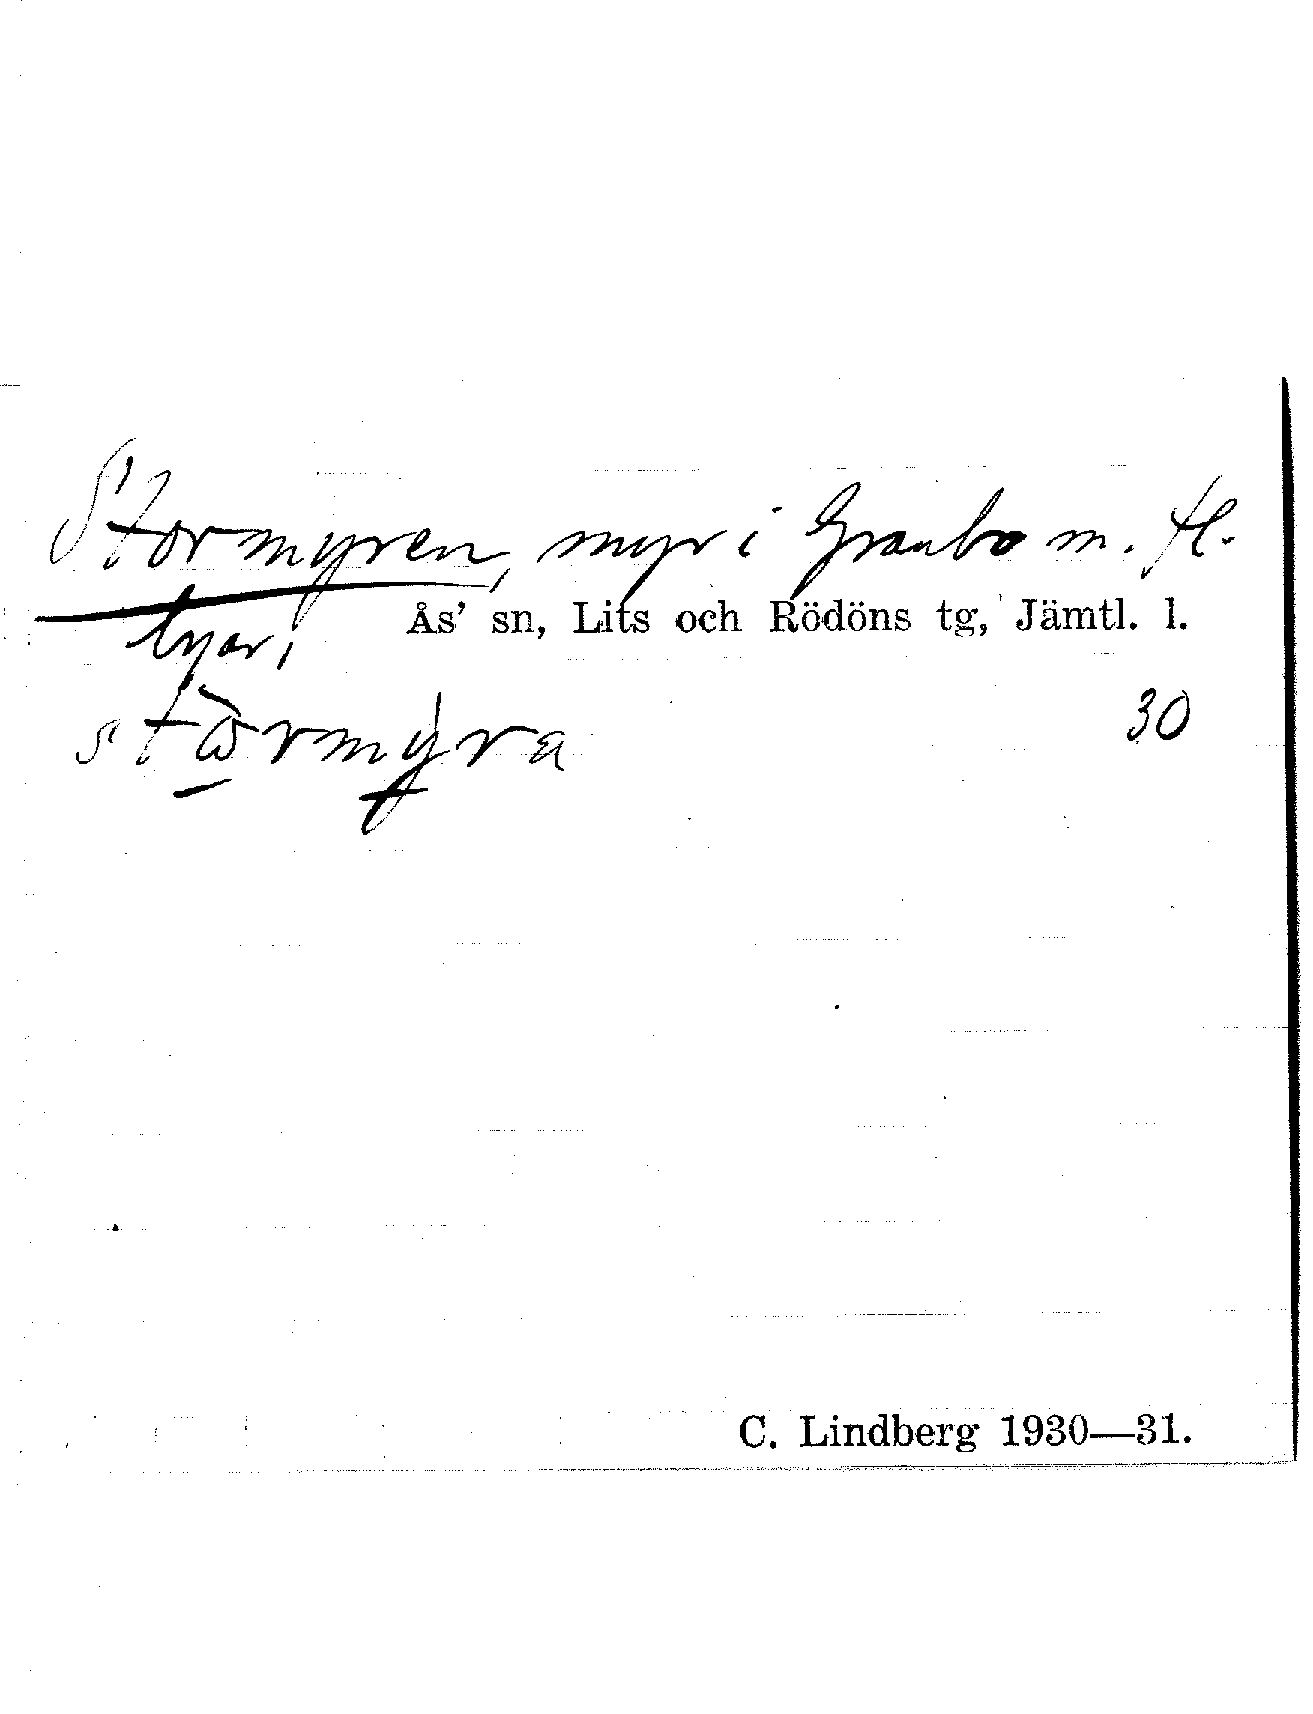 Stormyren, myr i Granbo m. fl.
byar,
Ås' sn, Lits och Rödöns tg, Jämtl. l.
30
C. Lindberg 1930—31.